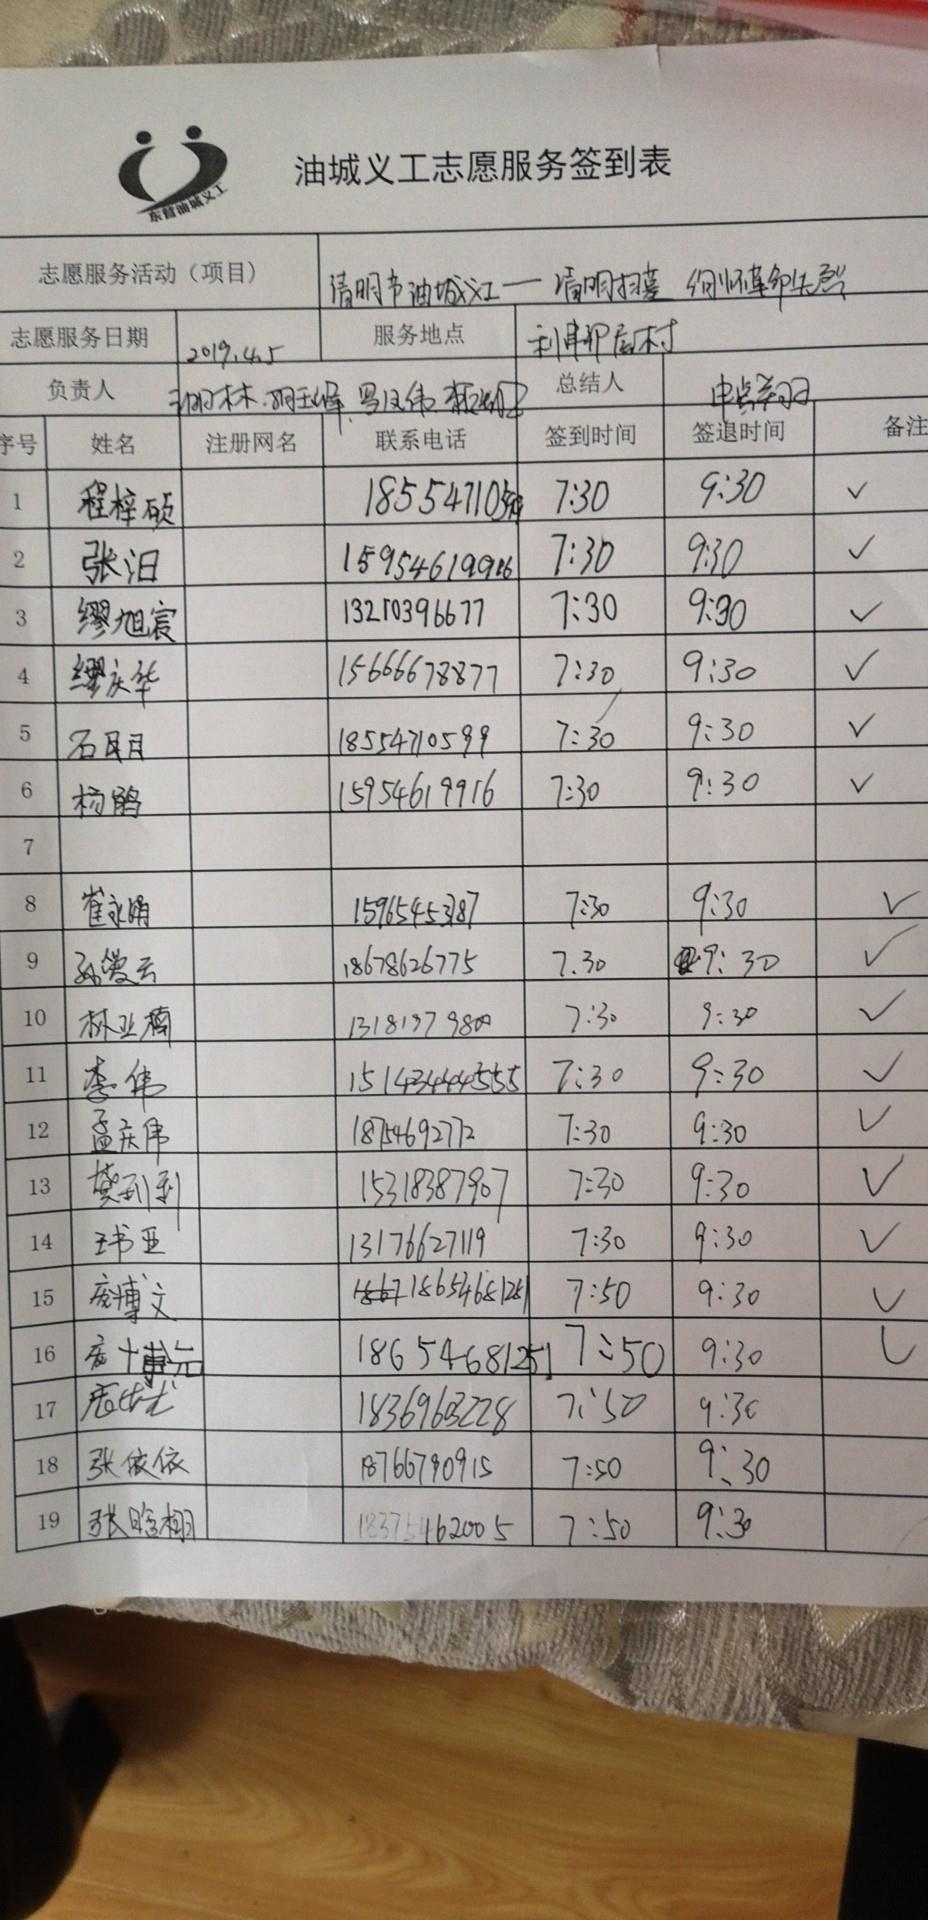 东营油城义工
油城义工志愿服务签到表
志愿服务活动（项目） 清明节油城义工一清明扫墓 缅怀革命先烈
志愿服务日期 2019.4.5 服务地点 利津
负责人 总结人
序号 姓名 注册网名 联系电话 签到时间 签退时间 备注
1 程梓硕 185547105 7:30 9:30 ✓
2 张汨 7:30 9:30 ✓
3 缪旭宸 13210396677 7:30 9:30 ✓
4 缪庆华 15666678877 7:30 9:30 ✓
5 石月月 18554710599 7:30 9:30 ✓
6 杨鹃 15954619916 7:30 9:30 ✓
7
8 崔永娟 15965453787 7:30 9:30 ✓
9 孙爱云 18678626775 7.30 9:30 ✓
10 林亚楠 13181979800 7:30 9:30 ✓
11 李伟 15143444555 7:30 9:30 ✓
12 孟庆伟 18754692772 7:30 9:30 ✓
13 利利 15318387907 7:30 9:30 ✓
14 13176627119 7:30 9:30 ✓
15 庞博文 18654681251 7:50 9:30 ✓
16 庞博元 18654681251 7:50 9:30 ✓
17 18369603228 7:50 9:30
18 张依依 18766790915 7:50 9:30
19 张晗栩 18375462005 7:50 9:30